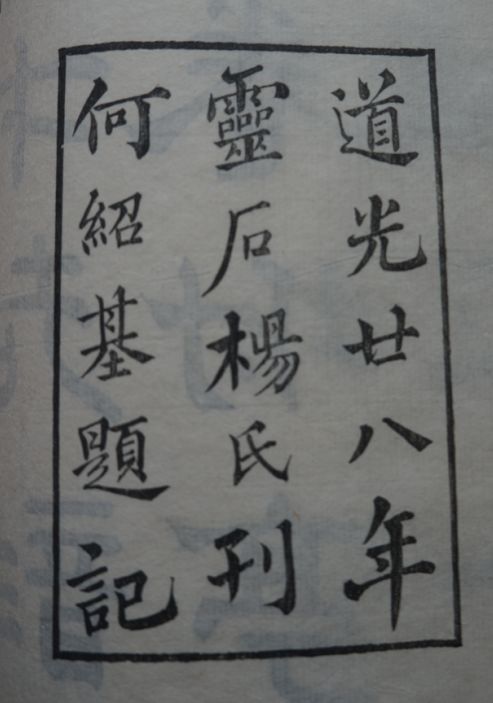 道光廿八年
靈石楊氏刊
何紹基題記